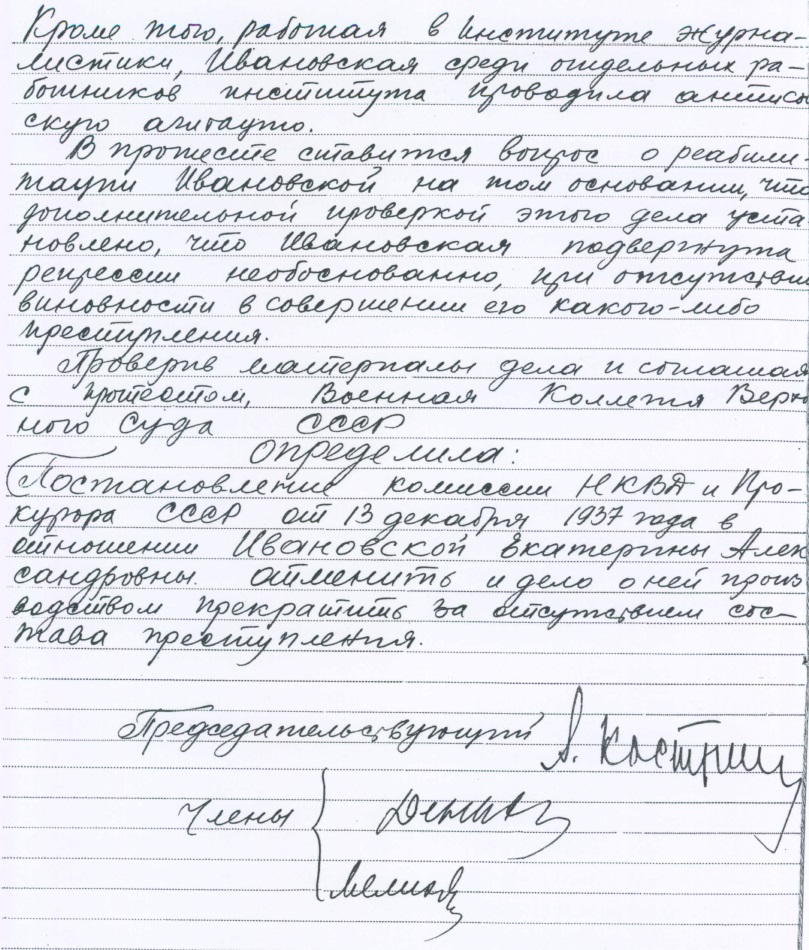 Кроме того, работая в Институте журна-
листики, Ивановская среди отдельных ра-
ботников института проводила антисо
скую агитацию.
В протесте ставится вопрос о реабили-
тации Ивановской на том основании, что
дополнительной проверкой этого дела уста
новлено, что Ивановская подвергнута
репрессии необоснованно, при отсутстви
виновности в совершении его какого-либо
преступления.
Проверив материалы дела и соглашая
с протестом, Военная Коллегия Верхо
ного Суда СССР
определила:
Постановление комиссии НКВД и Про-
курора СССР от 13 декабря 1937 года в
отношении Ивановской Екатерины Алек
сандровны отменить и дело о ней произ
водством прекратить за отсутствием сос-
тава преступления.
Председательствующий А. Костромин
Члены